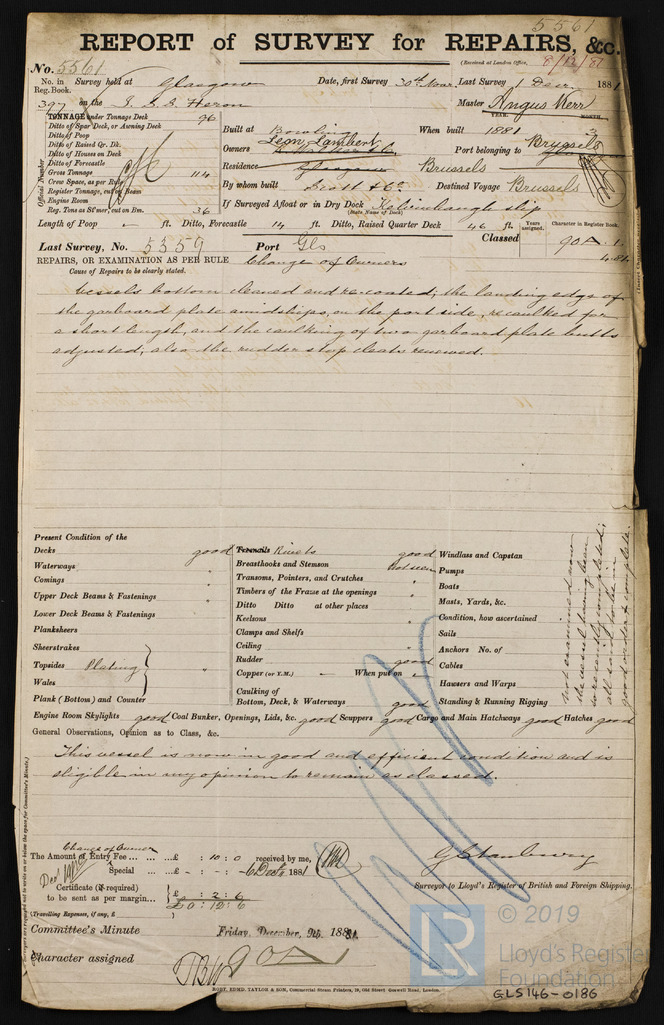 5561
REPORT of SURVEY for REPAIRS, &c.
(Received at London Office, 8/12/81
No. 5561
No. in Reg. Book. Survey held at Glasgow Date, first Survey 30th Novr. Last Survey 1 Decr. 1881
397 on the S.S.S Heron Master Angus Kerr
TONNAGE under Tonnage Deck 96
Ditto of Spar Deck, or Awning Deck
Ditto of Poop
Ditto of Raised Qr. Dk.
Ditto of Houses on Deck
Ditto of Forecastle
Gross Tonnage 114
Crew Space, as per Rule
Register Tonnage, cut on Beam
Engine Room
Reg. Tons as St'mer, cut on Bm. 36
Official Number
Built at Bowling When built YEAR. 1881 MONTH 3
Owners Leon Lambert Port belonging to Brussels
Residence Glasgow Brussels
By whom built Scott & Co Destined Voyage Brussels
If Surveyed Afloat or in Dry Dock Kelvinhaugh slip
(State Name of Dock)
Length of Poop - ft. Ditto, Forecastle 14 ft. Ditto, Raised Quarter Deck 46 ft. Years assigned. Character in Register Book.
Last Survey, No. 5359 Port Gls Classed 90A.1.
4.81
REPAIRS, OR EXAMINATION AS PER RULE Change of Owners
Cause of Repairs to be clearly stated.
Vessels bottom cleaned and re-coated; the landing edge of
the garboard plate amidships, on the port side, recaulked for
a short length, and the caulking of two garboard plate butts
adjusted, also the rudder stop cleats renewed.
Present Condition of the
Decks good
Waterways "
Comings "
Upper Deck Beams & Fastenings "
Lower Deck Beams & Fastenings
Planksheers
Sheerstrakes
Topsides Plating "
Wales
Plank (Bottom) and Counter
Treenails Rivets good
Breasthooks and Stemson not seen
Transoms, Pointers, and Crutches "
Timbers of the Frame at the openings "
Ditto Ditto at other places
Keelsons "
Clamps and Shelfs
Ceiling "
Rudder good
Copper (or Y.M.) - When put on -
Caulking of
Bottom, Deck, & Waterways good
Windlass and Capstan
Pumps
Boats
Masts, Yards, &c.
Condition, how ascertained
Sails
Anchors No. of
Cables
Hawsers and Warps
Standing & Running Rigging
not examined now
the vessel having been
so recently completed;
all said to be in
good order & complete.
Engine Room Skylights good Coal Bunker, Openings, Lids, &c. good Scuppers good Cargo and Main Hatchways good Hatches good
General Observations, Opinion as to Class, &c.
This vessel is now in good and efficient condition and is
eligible in my opinion to remain as classed.
Change of Owner
The Amount of Entry Fee ... ... ...£ : 10 : 0 received by me,
Special ... ...£ - : - : - 6 Decr. 1881
Certificate (if required)
to be sent as per margin... £ : 2 : 6
£0 : 12 : 6
(Travelling Expenses, if any, £ )
Surveyor to Lloyd's Register of British and Foreign Shipping.
Committee's Minute Friday, December, 9th, 1881.
Character assigned 90A1
ROBT. EDMD. TAYLOR & SON, Commercial Steam Printers, 19, Old Street Goswell Road, London.
LR
© 2019
Lloyd's Register
Foundation
GLS146-0186